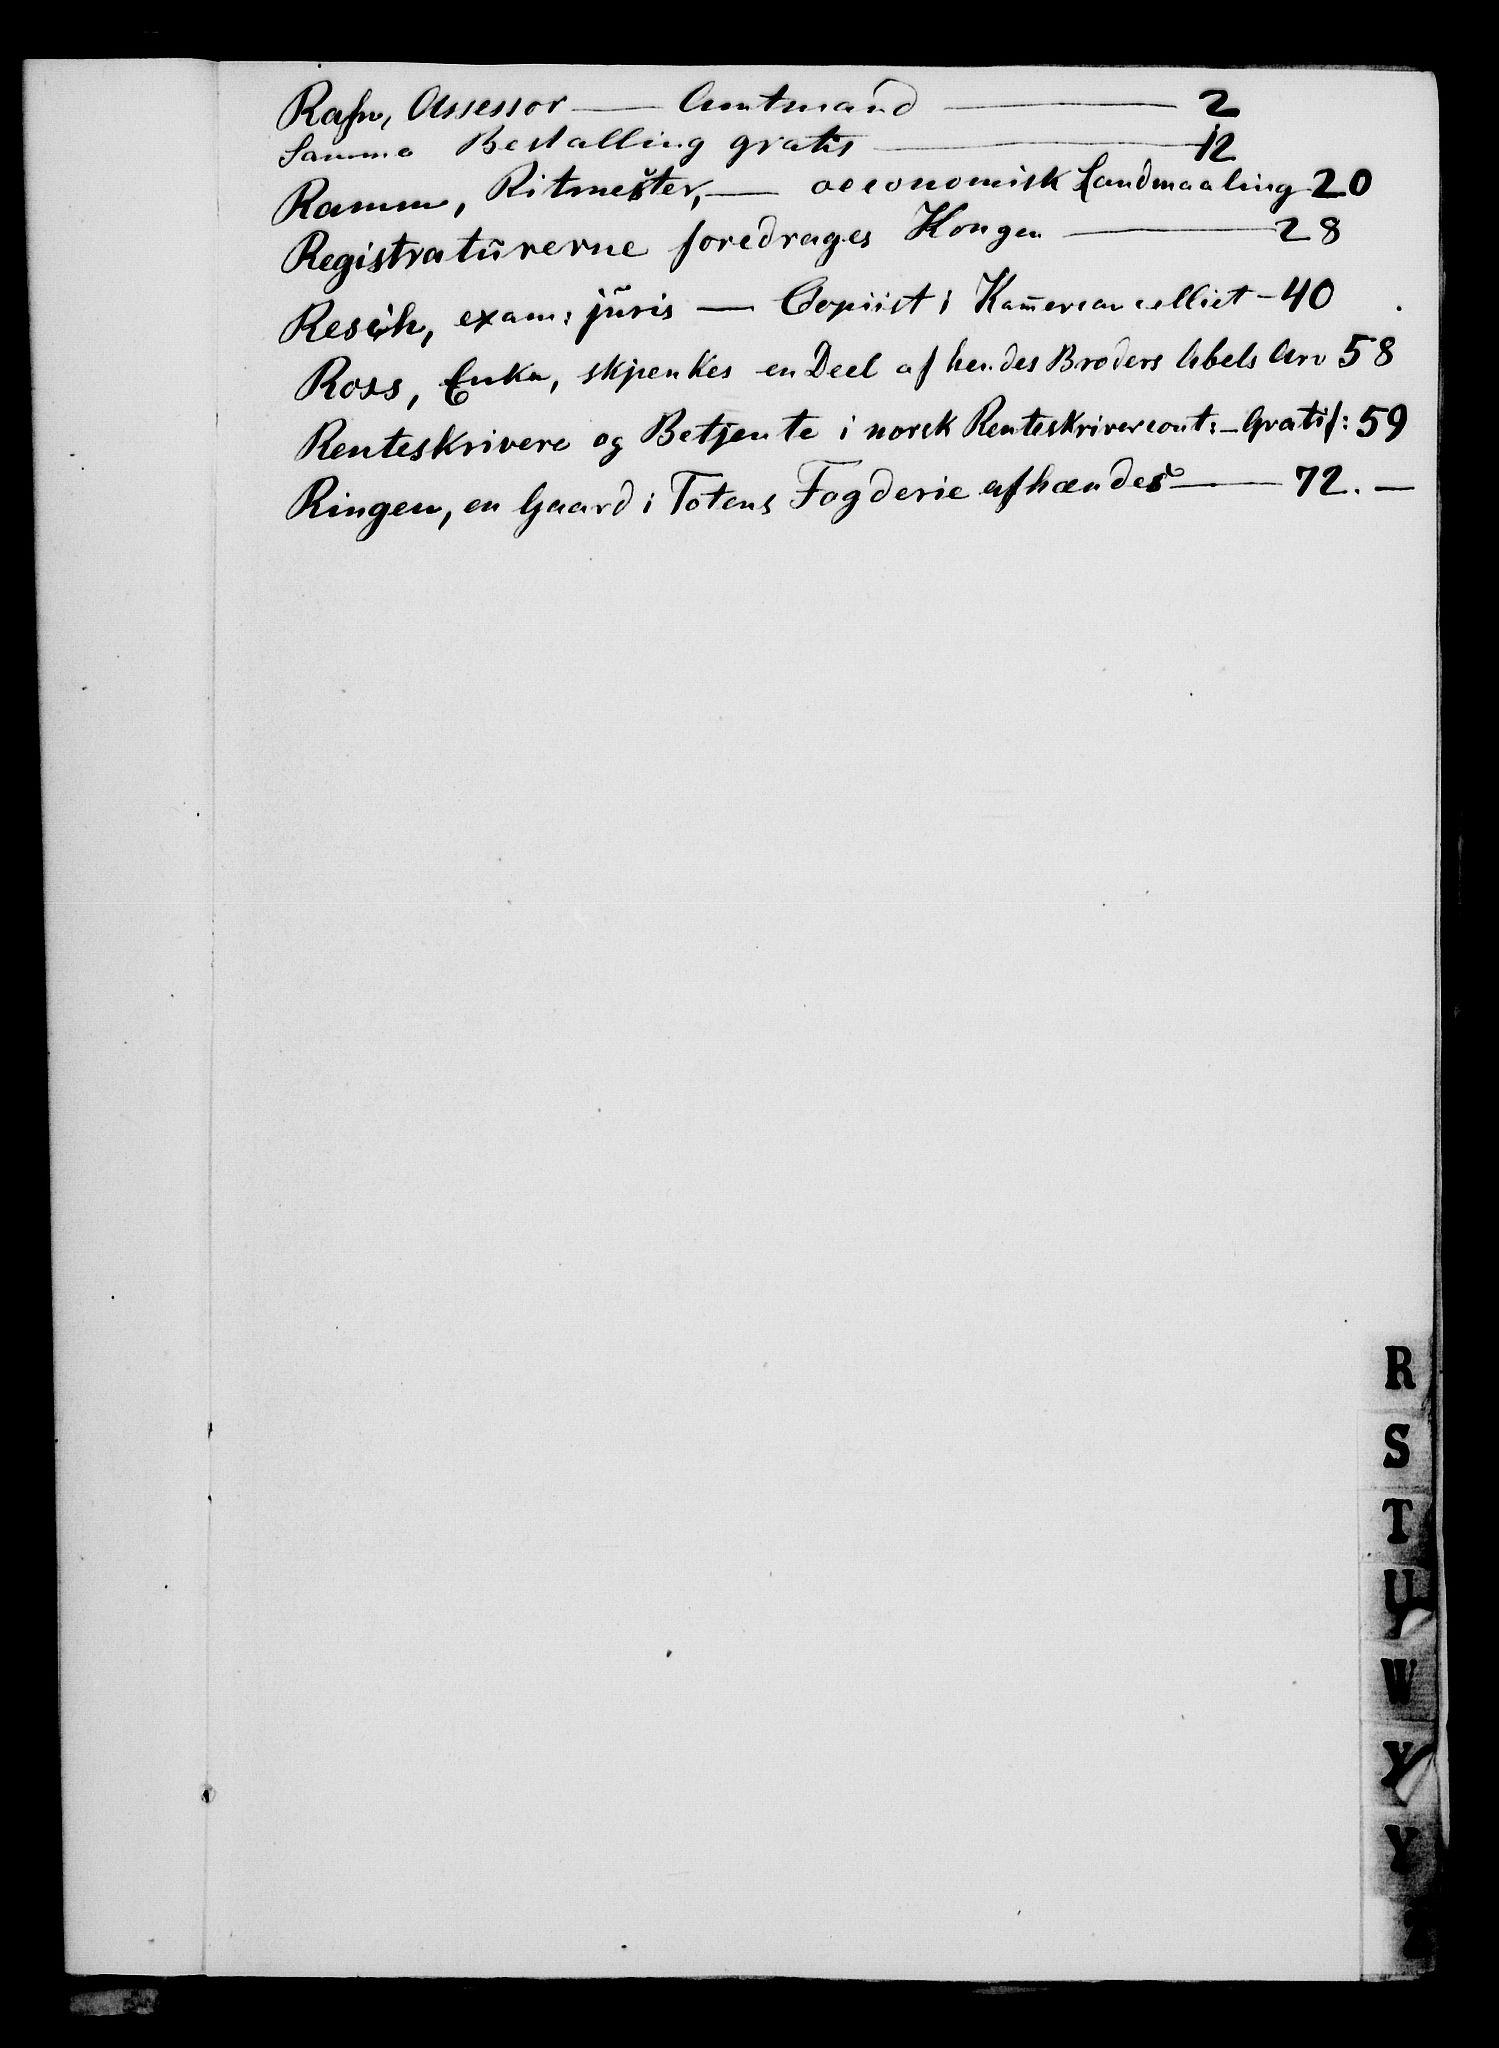 Rafn, Assessor — Amtmand — 2
Samme Bestalling gratis — 12
Ramm, Ritmester, — oeconomisk Landmaaling 20
Registraturerne foredrages Kongen — 28
Resch, exam: juris — Copiist i Kam̄ercancelliet – 40
Ross, Enke, skjenkes en Deel af hendes Broders Abels Arv 58
Renteskrivere og Betjente i norsk Renteskrivercont: – Gratif: 59
Ringen, en Gaard i Totens Fogderie afhændes — 72. —
R
S
T
U
W
X
Y
Z